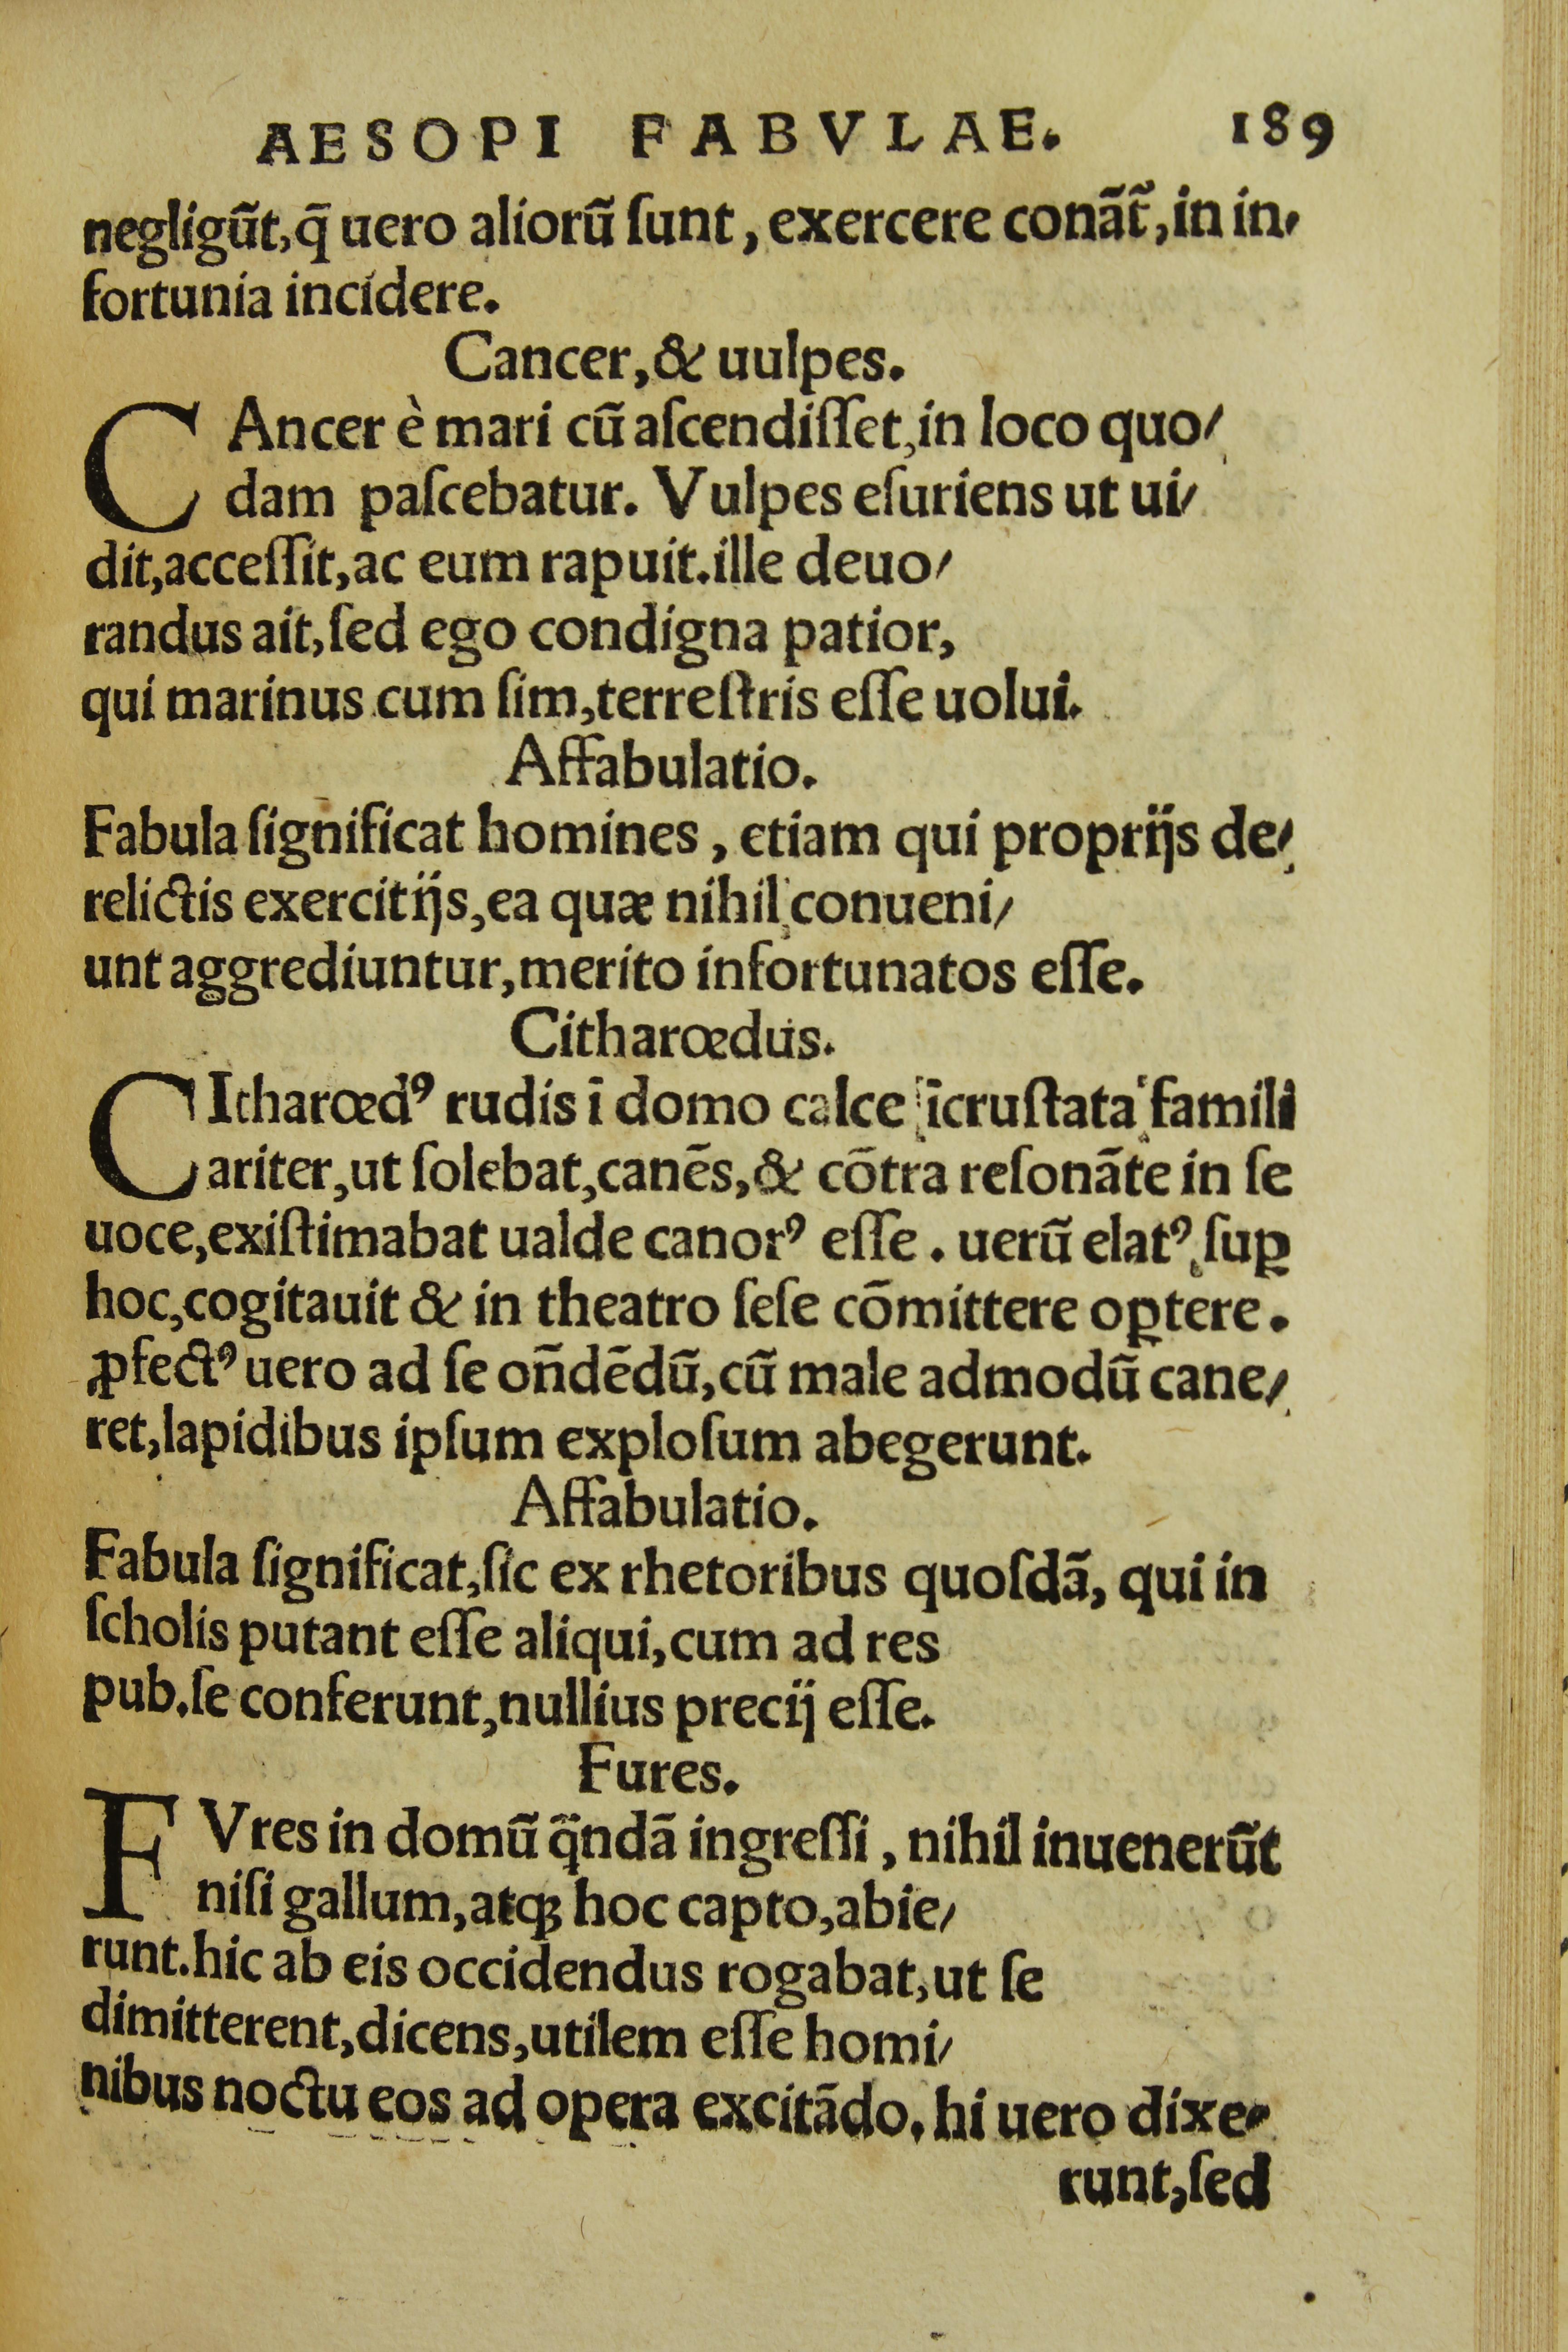 AESOPI FABVLAE. 189
negligũt, q̃ uero aliorũ ſunt, exercere conãt̃, in in-
fortunia incidere.
Cancer, & uulpes.
CAncer è mari cũ aſcendiſſet, in loco quo-
dam paſcebatur. Vulpes eſuriens ut ui-
dit, acceſſit, ac eum rapuit. ille deuo-
randus ait, ſed ego condigna patior,
qui marinus cum ſim, terreſtris eſſe uolui.
Affabulatio.
Fabula ſignificat homines, etiam qui proprijs de-
relictis exercitijs, ea quæ nihil conueni-
unt aggrediuntur, merito infortunatos eſſe.
Citharœdus.
CItharœdꝰ rudis ĩ domo calce ĩcruſtata famili
ariter, ut ſolebat, canẽs, & cõtra reſonãte in ſe
uoce, exiſtimabat ualde canorꝰ eſſe. uerũ elatꝰ ſuꝑ
hoc, cogitauit & in theatro ſeſe cõmittere oꝑtere.
ꝓfectꝰ uero ad ſe oñdẽdũ, cũ male admodũ cane-
ret, lapidibus ipſum exploſum abegerunt.
Affabulatio.
Fabula ſignificat, ſic ex rhetoribus quoſdã, qui in
ſcholis putant eſſe aliqui, cum ad res
pub. ſe conferunt, nullius precij eſſe.
Fures.
FVres in domũ q̃ndã ingreſſi, nihil inuenerũt
niſi gallum, atqꝫ hoc capto, abie-
runt. hic ab eis occidendus rogabat, ut ſe
dimitterent, dicens, utilem eſſe homi-
nibus noctu eos ad opera excitãdo. hi uero dixe-
runt, ſed